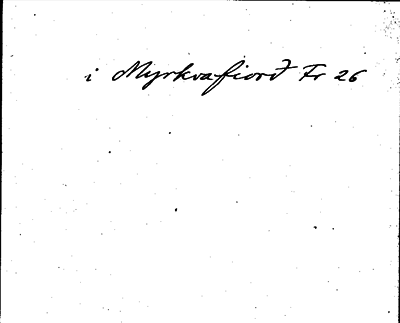 i Myrkvafiorð Fr 26